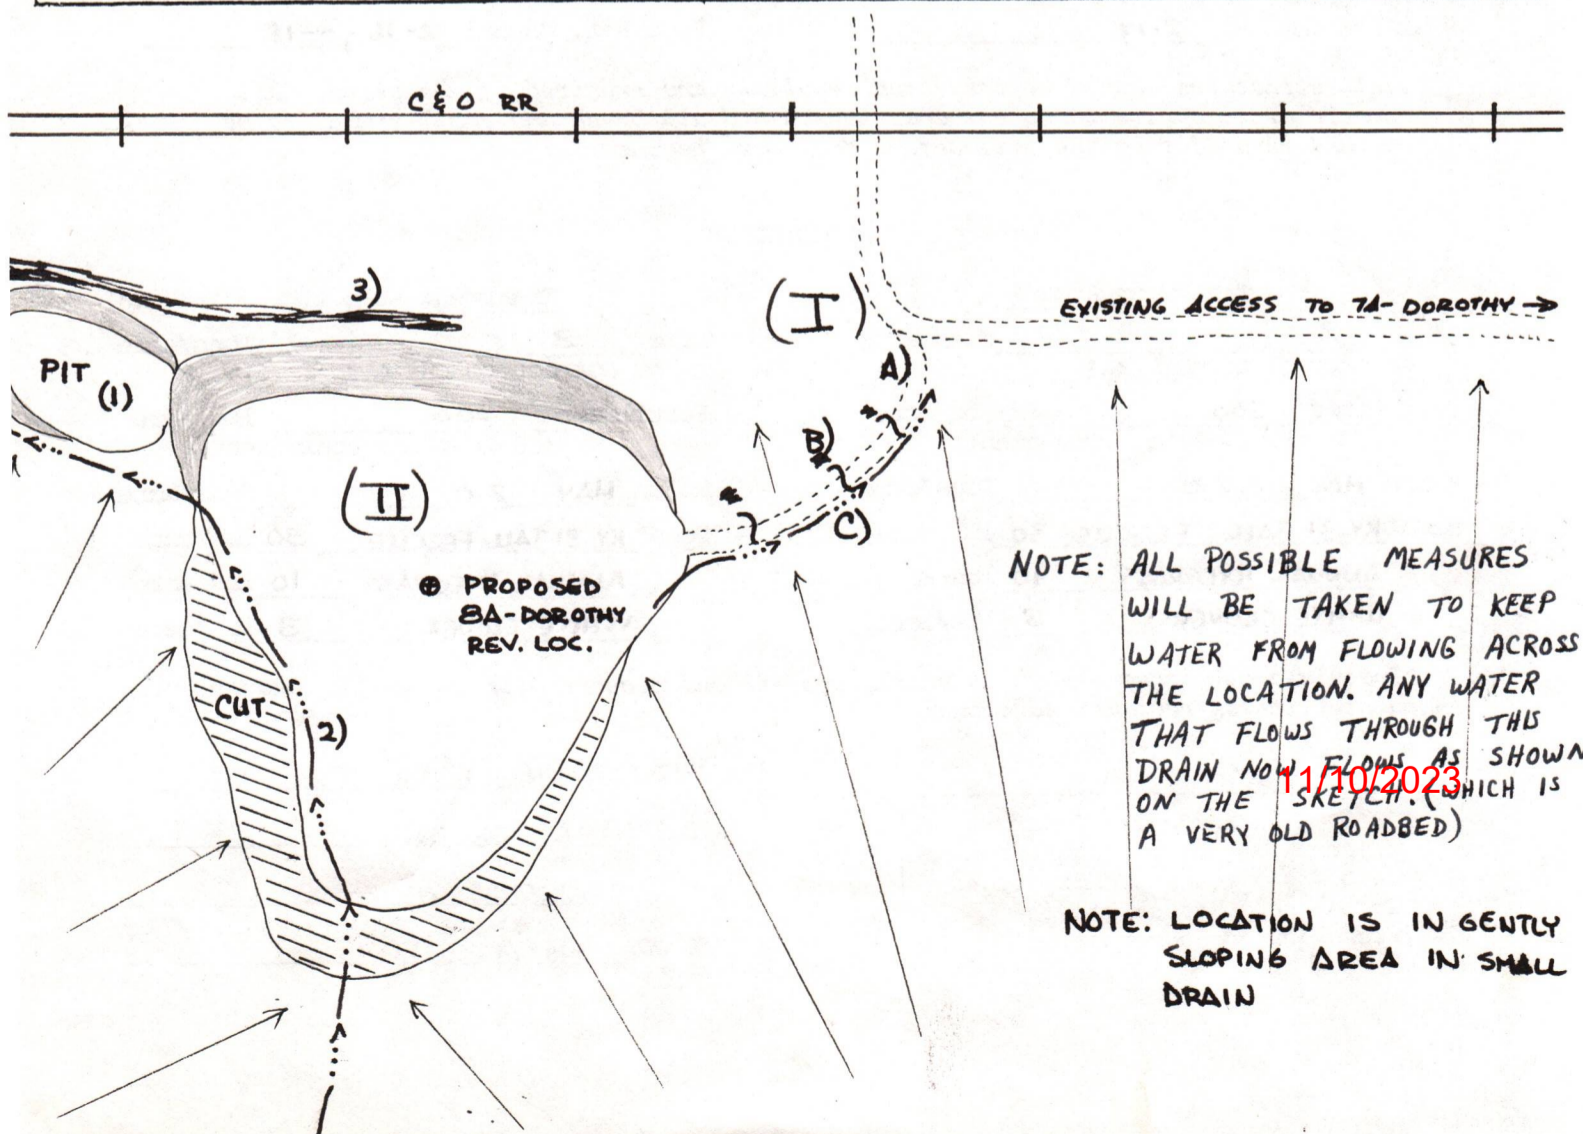 C & O RR
3)
(I)
EXISTING ACCESS TO 7A- DOROTHY →
PIT (1)
A)
B)
(II)
C)
⊕ PROPOSED
8A-DOROTHY
REV. LOC.
NOTE: ALL POSSIBLE MEASURES
WILL BE TAKEN TO KEEP
WATER FROM FLOWING ACROSS
THE LOCATION. ANY WATER
THAT FLOWS THROUGH THIS
DRAIN NOW FLOWS AS SHOWN
11/10/2023
ON THE SKETCH. (WHICH IS
A VERY OLD ROADBED)
CUT
2)
NOTE: LOCATION IS IN GENTLY
SLOPING AREA IN SMALL
DRAIN